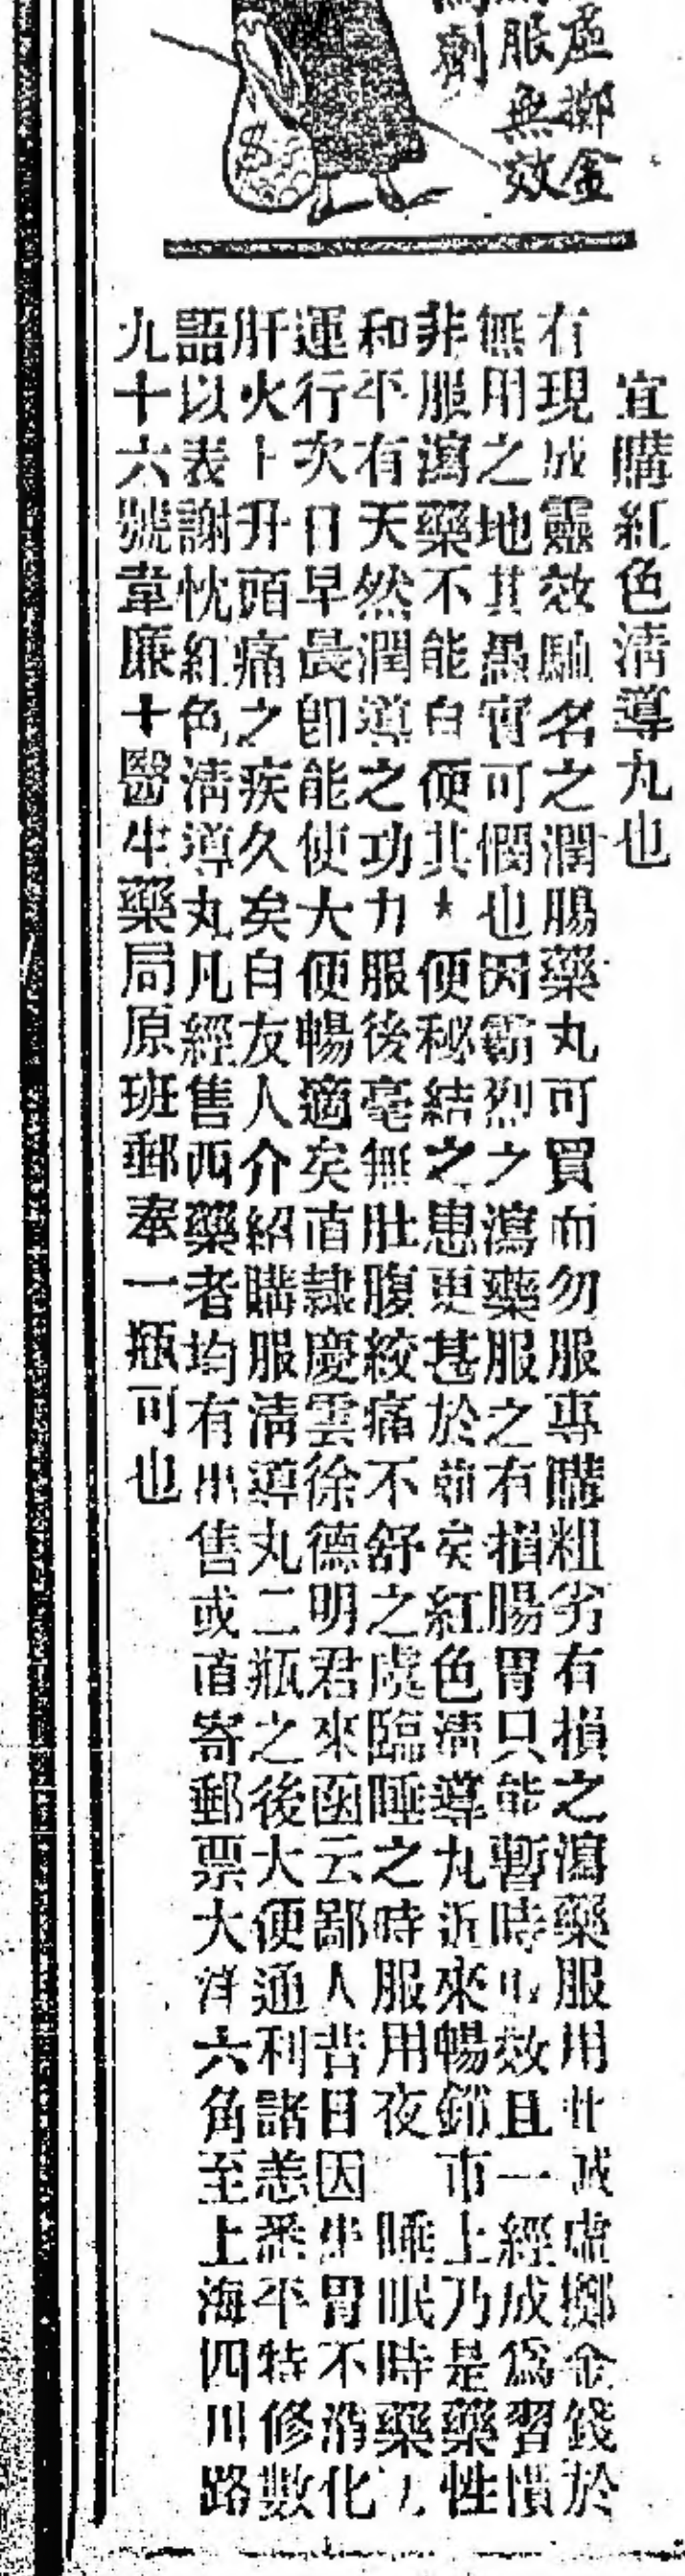 虛擲金
服無效
劑
宜購紅色清導丸也
有現成靈效馳名之潤腸藥丸可買而勿服專購粗劣有損之瀉藥服用此誠虛擲金錢於
無用之地其愚實可憫也因霸烈之瀉藥服之有損腸胃只能暫時見效且一經成為習慣
非服瀉藥不能自便其大便秘結之患更甚於前矣紅色清導丸近來暢銷市上乃是藥性
和平有天然潤導之功力服後毫無肚腹絞痛不舒之處臨睡之時服用夜睡眠時藥力
運行次日早晨卽能使大便暢適矣直隸慶雲徐德明君來函云鄙人昔日因坐胃不消化
肝火上升頭痛之疾久矣自友人介紹購服清導丸二瓶之後大便通利諸恙悉平特修數
語以表謝忱紅色清導丸凡經售西藥者均有出售或直寄郵票大洋六角至上海四川路
九十六號韋廉士醫生藥局原班郵奉一瓶可也